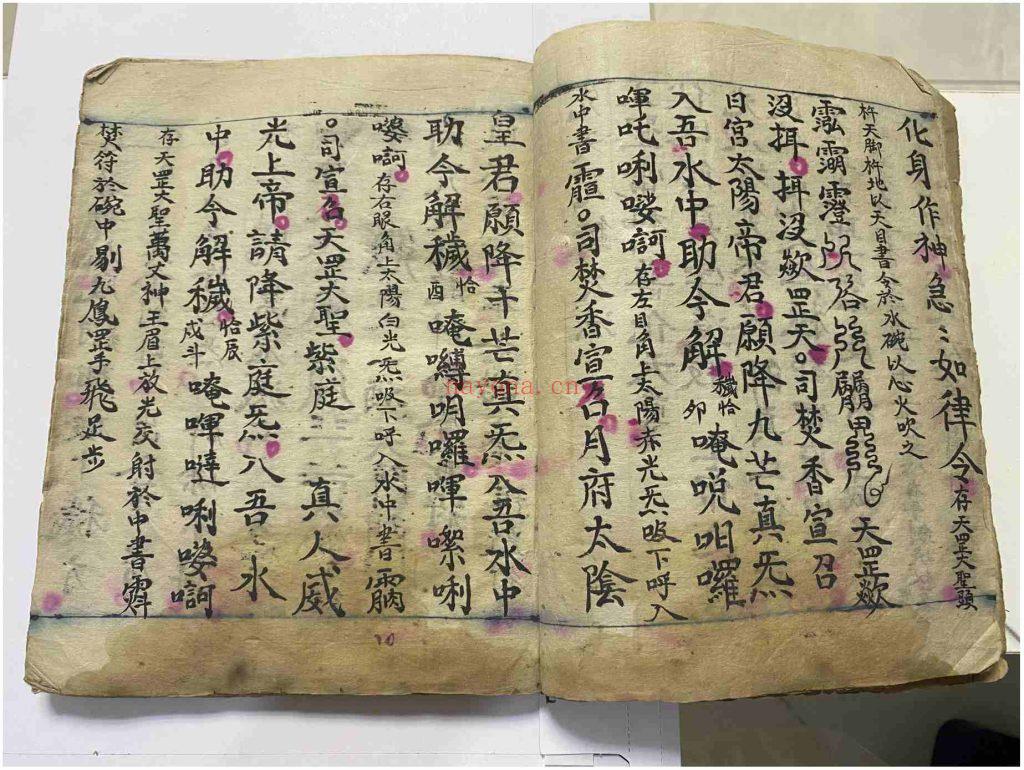 化身作神急〻如律令存天罡大聖頭
杵天脚杵地以天目書令於水碗以心火吹之
天罡欻
沒揖。揖沒欻罡天。司焚香宣召
日宮太陽帝君。願降九芒真炁
入吾水中。助令解穢恰卯唵哾呬囉
喗吒唎娑訶。存左目角上太陽赤光炁吸下呼入
水中書。司焚香宣召月府太陰
皇君。願降十芒真炁入吾水中
助令解穢恰酉唵嚩明囉喗㗫唎
娑訶。存右眼角上太陽白光炁吸下呼入水中書
。司宣召。天罡大聖。紫庭真人威
光上帝。請降紫庭炁。入吾水
中。助令解穢恰辰戌斗唵喗噠唎娑訶
存天罡大聖萬丈神王眉上放光交射於中書
焚符於碗中剔九鳳罡手飛足步
nayona.cn
10